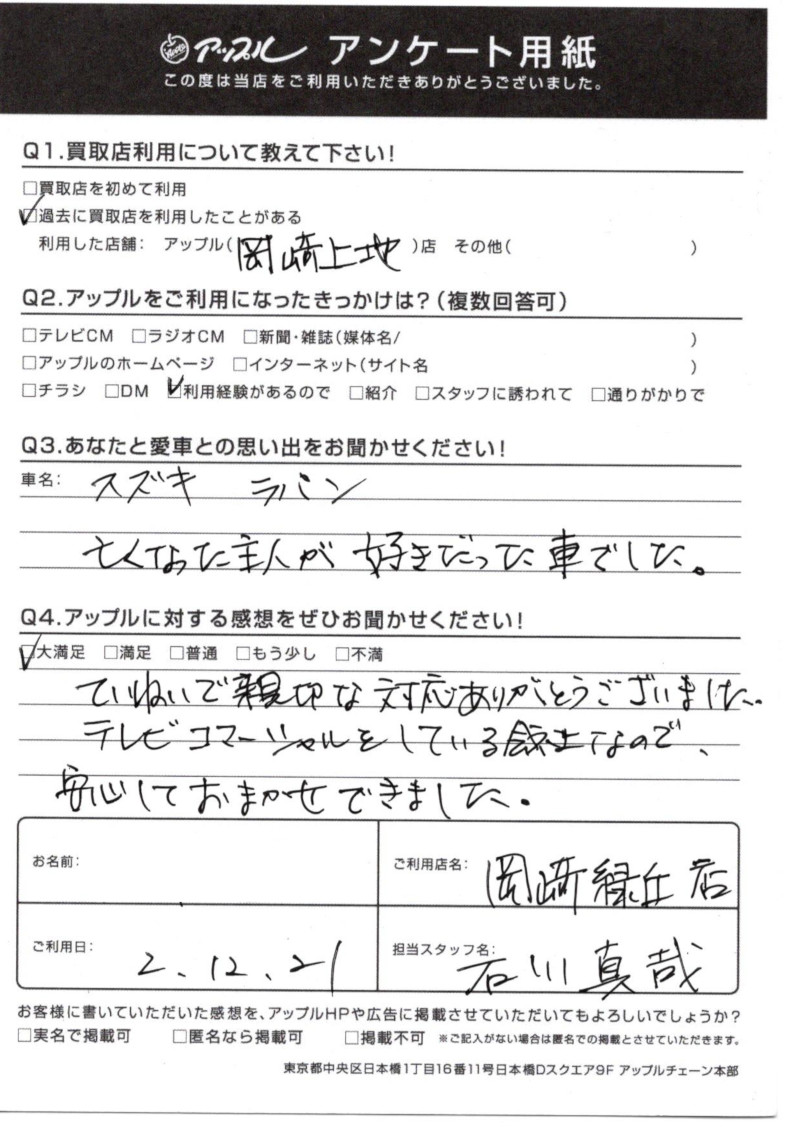 アップル アンケート用紙
この度は当店をご利用いただきありがとうございました。
Q1.買取店利用について教えて下さい!
□買取店を初めて利用
☑過去に買取店を利用したことがある
利用した店舗: アップル(岡崎上地)店 その他( )
Q2.アップルをご利用になったきっかけは?(複数回答可)
□テレビCM □ラジオCM □新聞・雑誌(媒体名/ )
□アップルのホームページ □インターネット(サイト名 )
□チラシ □DM ☑利用経験があるので □紹介 □スタッフに誘われて □通りがかりで
Q3.あなたと愛車との思い出をお聞かせください!
車名: スズキ ラパン
亡くなった主人が 好きだった車でした。
Q4.アップルに対する感想をぜひお聞かせください!
☑大満足 □満足 □普通 □もう少し □不満
ていねいで親切な対応ありがとうございました。
テレビコマーシャルをしている会社なので、
安心しておまかせできました。
お名前:
ご利用店名: 岡崎緑丘店
ご利用日: 2.12.21
担当スタッフ名: 石川真哉
お客様に書いていただいた感想を、アップルHPや広告に掲載させていただいてもよろしいでしょうか?
□実名で掲載可 □匿名なら掲載可 □掲載不可 ※ご記入がない場合は匿名での掲載とさせていただきます。
東京都中央区日本橋1丁目16番11号日本橋Dスクエア9F アップルチェーン本部